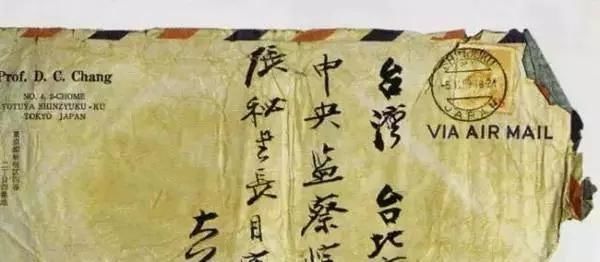 Prof. D. C. Chang
NO. 4, 2-CHOME
YOTUYA SHINZYUKU-KU
TOKYO JAPAN
東京都新宿区四谷
二丁目四番地
台灣 台北
中央監察
張秘書長目
大
JAPAN
VIA AIR MAIL